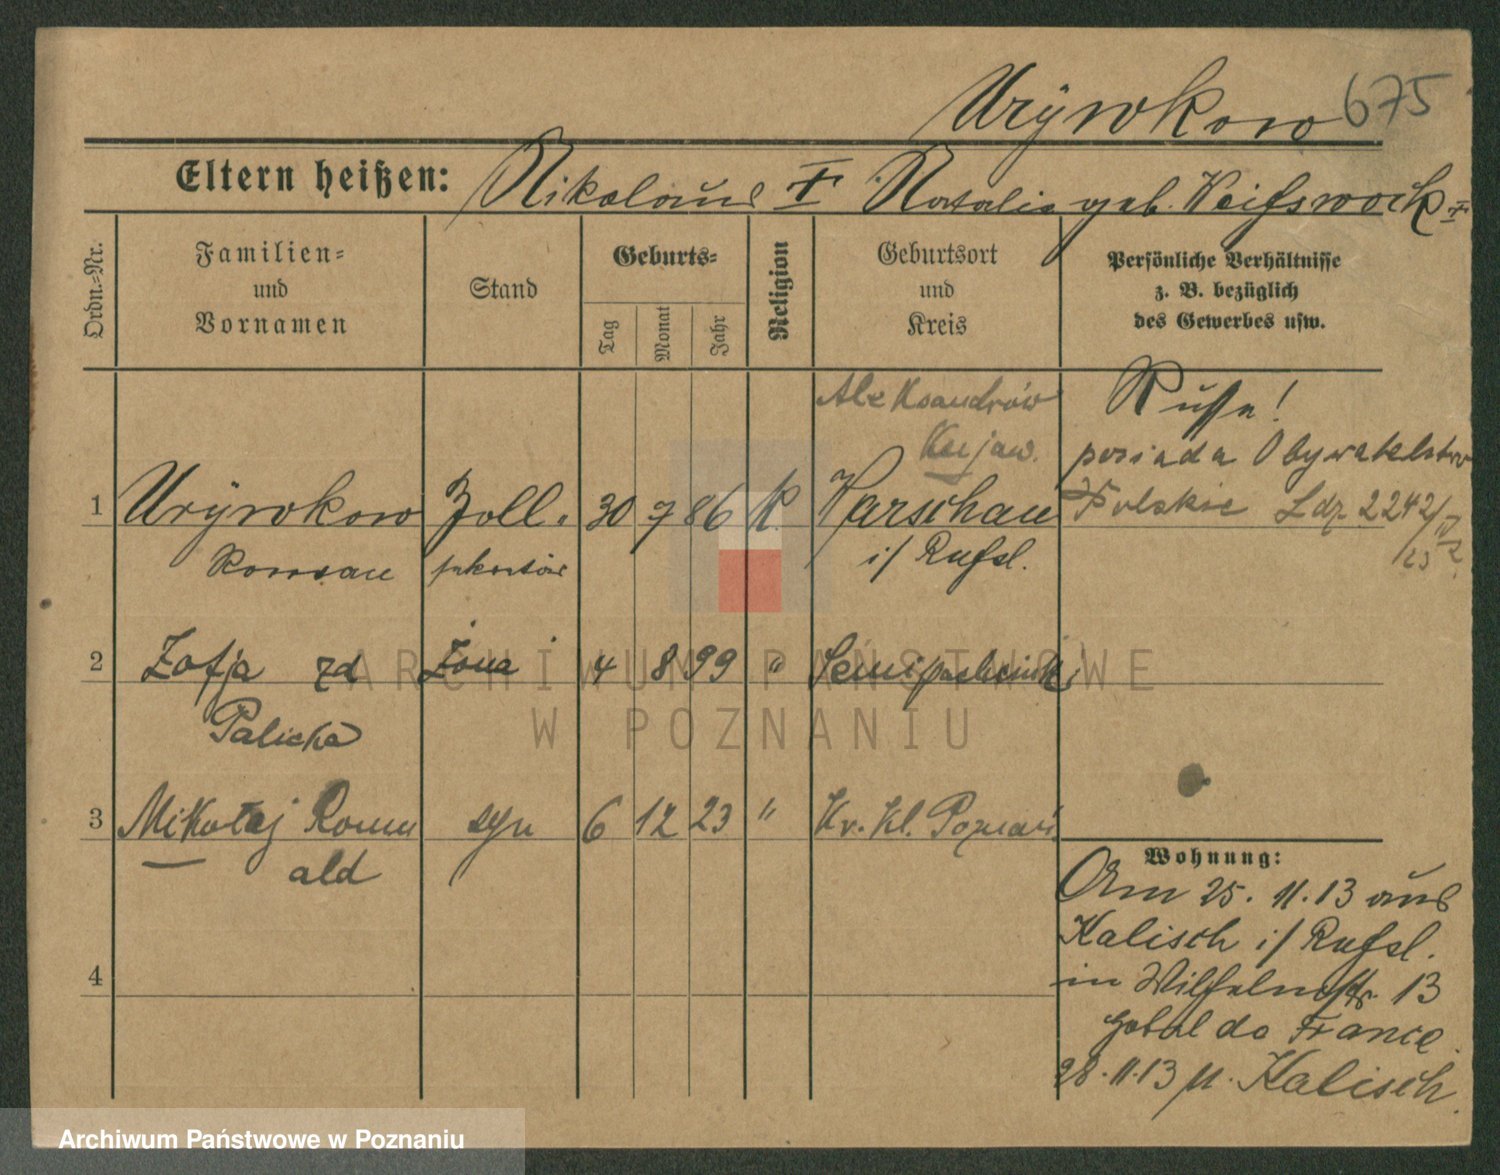 Urÿwkow 675
Eltern heißen: Nikolaus † Natalie geb. Weißwock †
Ordn.-Nr.
Familien-
und
Vornamen
Stand
Geburts-
Tag
Monat
Jahr
Religion
Geburtsort
und
Kreis
Persönliche Verhältnisse
z. B. bezüglich
des Gewerbes usw.
Aleksandrów
Kujaw.
Russe!
posiada Obywatelstwo
Polskie Ldz. 2242/IV
25
1 Urÿwkow Zoll- 30 7 86 K. Warschau
Roman sekretär i/ Rußl.
2 Zofja zd Żona 4 8 99 " Semipalatinsk
Palicka
3 Mikołaj Romu syn 6 12 23 " Kr. Kl. Poznań
ald
4
Wohnung:
Am 25. 11. 13 aus
Kalisch i/ Rußl.
in Wilhelmstr. 13
Hotel de France
28.11.13 n. Kalisch.
ARCHIWUM PAŃSTWOWE
W POZNANIU
Archiwum Państwowe w Poznaniu